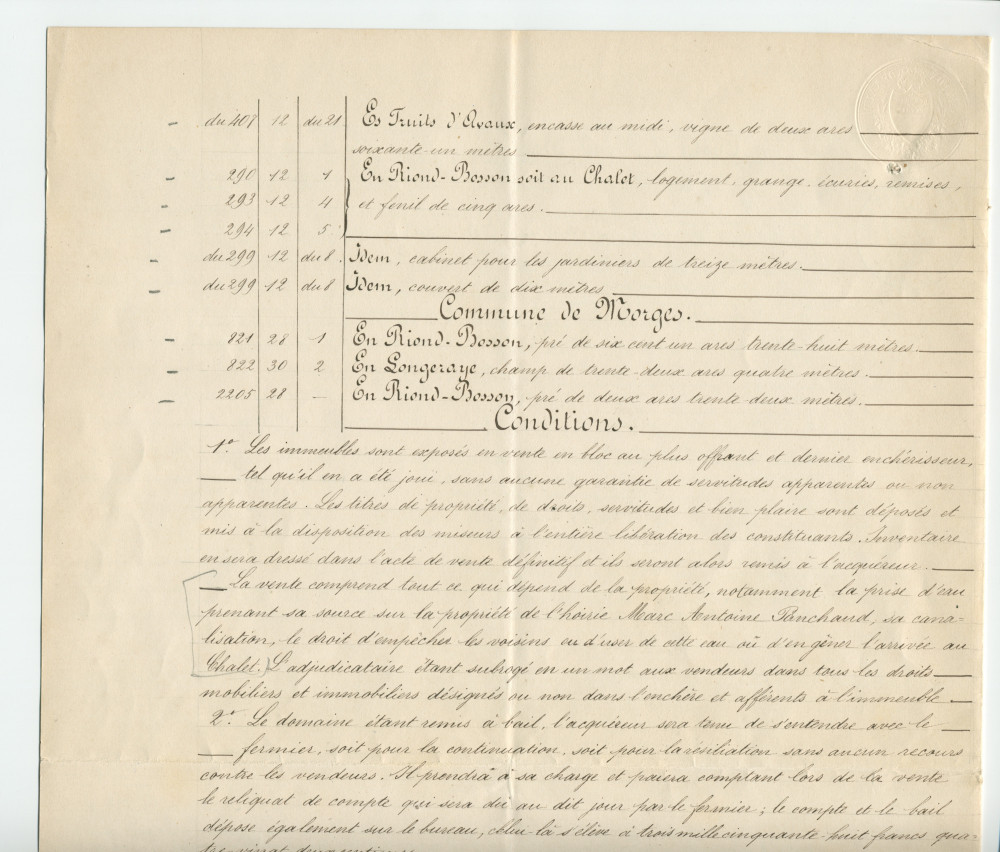 du 407 12 du 21 Es Fruits d'Avaux, encasse au midi, vigne de deux ares
soixante-un mètres
290 12 1 En Riond-Bosson soit au Chalet, logement, grange, écuries, remises,
293 12 4 et fenil de cinq ares.
294 12 5
du 299 12 du 8. Idem, cabinet pour les jardiniers de treize mètres.
du 299 12 du 8 Idem, couvert de dix mètres
Commune de Morges.
821 28 1 En Riond-Bosson, pré de six cent un ares trente-huit mètres.
822 30 2 En Longeraye, champ de trente-deux ares quatre mètres.
2205 28 — En Riond-Bosson, pré de deux ares trente-deux mètres.
Conditions.
1° Les immeubles sont exposés en vente en bloc au plus offrant et dernier enchérisseur,
tel qu'il en a été joui, sans aucune garantie de servitudes apparentes ou non
apparentes. Les titres de propriété, de droits, servitudes et bien plaire sont déposés et
mis à la disposition des miseurs à l'entière libération des constituants. Inventaire
en sera dressé dans l'acte de vente définitif et ils seront alors remis à l'acquéreur.
La vente comprend tout ce qui dépend de la propriété, notamment la prise d'eau
prenant sa source sur la propriété de l'hoirie Marc Antoine Panchaud, sa cana-
lisation, le droit d'empêcher les voisins ou d'user de cette eau où d'en gêner l'arrivée au
Chalet.) L'adjudicataire étant subrogé en un mot aux vendeurs dans tous les droits
mobiliers et immobiliers désignés ou non dans l'enchère et afférents à l'immeuble.
2° Le domaine étant remis à bail, l'acquéreur sera tenu de s'entendre avec le
fermier, soit pour la continuation, soit pour la résiliation sans aucun recours
contre les vendeurs. Il prendra à sa charge et paiera comptant lors de la vente
le reliquat de compte qui sera dû au dit jour par le fermier; le compte et le bail
dépose également sur le bureau, celui-là s'élève à trois mille cinquante-huit francs qua-
tre-vingt